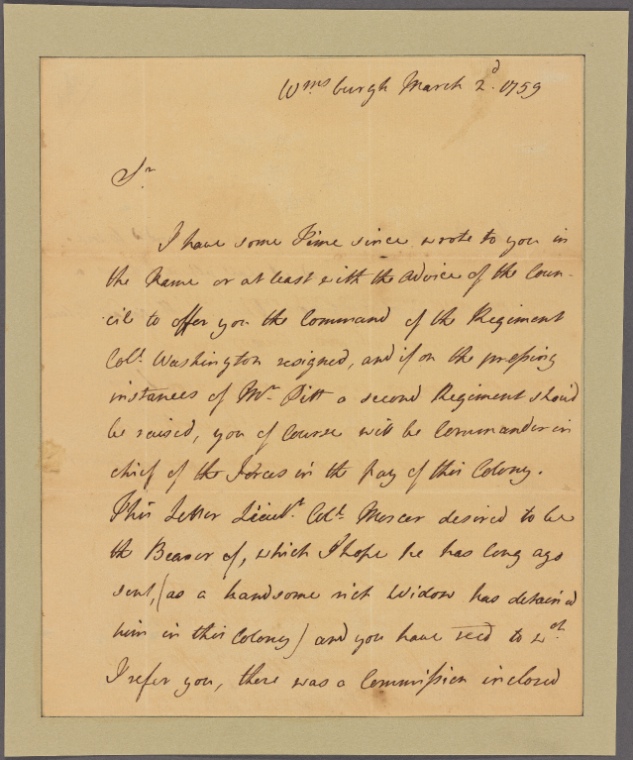 Wmsburgh March 2d. 1759
Sr
I have some Time since wrote to you in
the Name or at least with the Advice of the Coun-
cil to offer you the Command of the Regiment
Coll. Washington resigned, and if on the pressing
instances of Mr. Pitt a second Regiment should
be raised, you of Course will be Commander in
chief of the Forces in the pay of this Colony.
This Letter Lieut. Colo. Mercer desired to be
the Bearer of, which I hope he has long ago
sent, (as a handsome rich Widow has detain'd
him in this Colony) and you have recd to wch
I refer you, there was a Commission inclosed